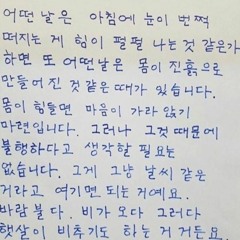 어떤 날은 아침에 눈이 번쩍
떠지는 게 힘이 펄펄 나는 것 같은가
하면 또 어떤날은 몸이 진흙으로
만들어진 것 같은 때가 있습니다.
몸이 힘들면 마음이 가라 앉기
마련입니다. 그러나 그것 때문에
불행하다고 생각할 필요는
없습니다. 그게 그냥 날씨 같은
거라고 여기면 되는 거예요.
바람 불다. 비가 오다 그러다
햇살이 비추기도 하는 거 거든요.